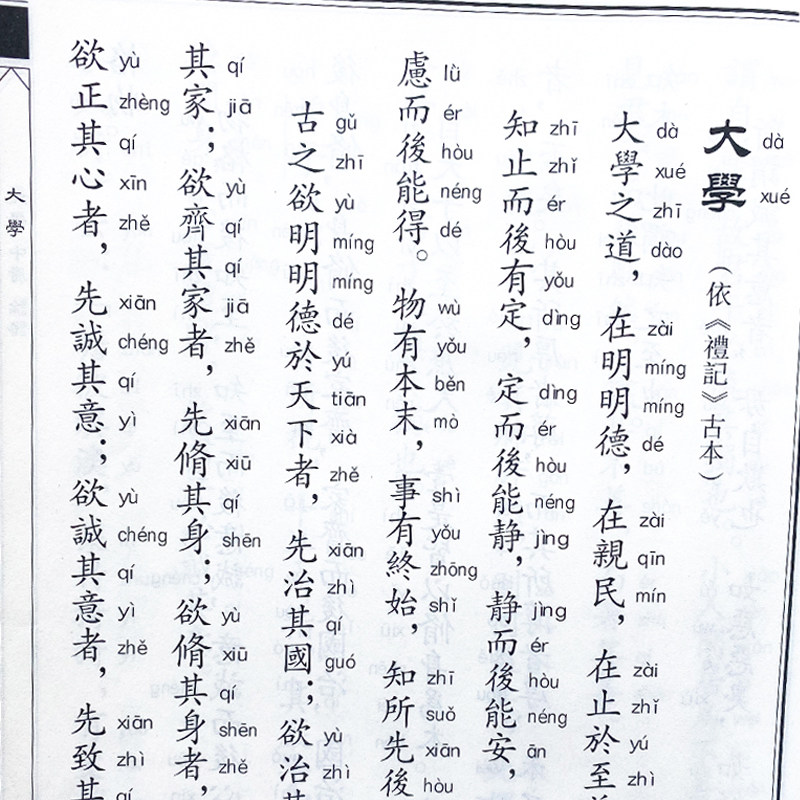 dà xué
大學（依《禮記》古本）
dà xué zhī dào zài míng míng dé zài qīn mín zài zhǐ yú zhì
大學之道，在明明德，在親民，在止於至
zhī zhǐ ér hòu yǒu dìng dìng ér hòu néng jìng jìng ér hòu néng ān
知止而後有定，定而後能静，静而後能安，
lǜ ér hòu néng dé wù yǒu běn mò shì yǒu zhōng shǐ zhī suǒ xiān hòu
慮而後能得。物有本末，事有終始，知所先後
gǔ zhī yù míng míng dé yú tiān xià zhě xiān zhì qí guó yù zhì
古之欲明明德於天下者，先治其國；欲治其
qí jiā yù qí qí jiā zhě xiān xiū qí shēn yù xiū qí shēn zhě
其家；欲齊其家者，先脩其身；欲脩其身者，
yù zhèng qí xīn zhě xiān chéng qí yì yù chéng qí yì zhě xiān zhì qí
欲正其心者，先誠其意；欲誠其意者，先致其
大學